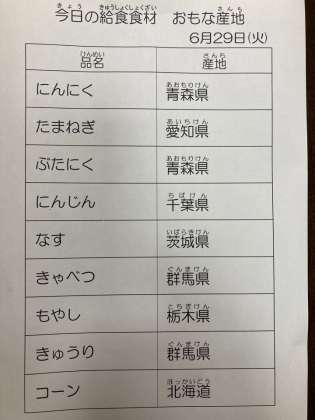 今日の給食食材 おもな産地
6月29日(火)
品名 産地
にんにく 青森県
たまねぎ 愛知県
ぶたにく 青森県
にんじん 千葉県
なす 茨城県
きゃべつ 群馬県
もやし 栃木県
きゅうり 群馬県
コーン 北海道